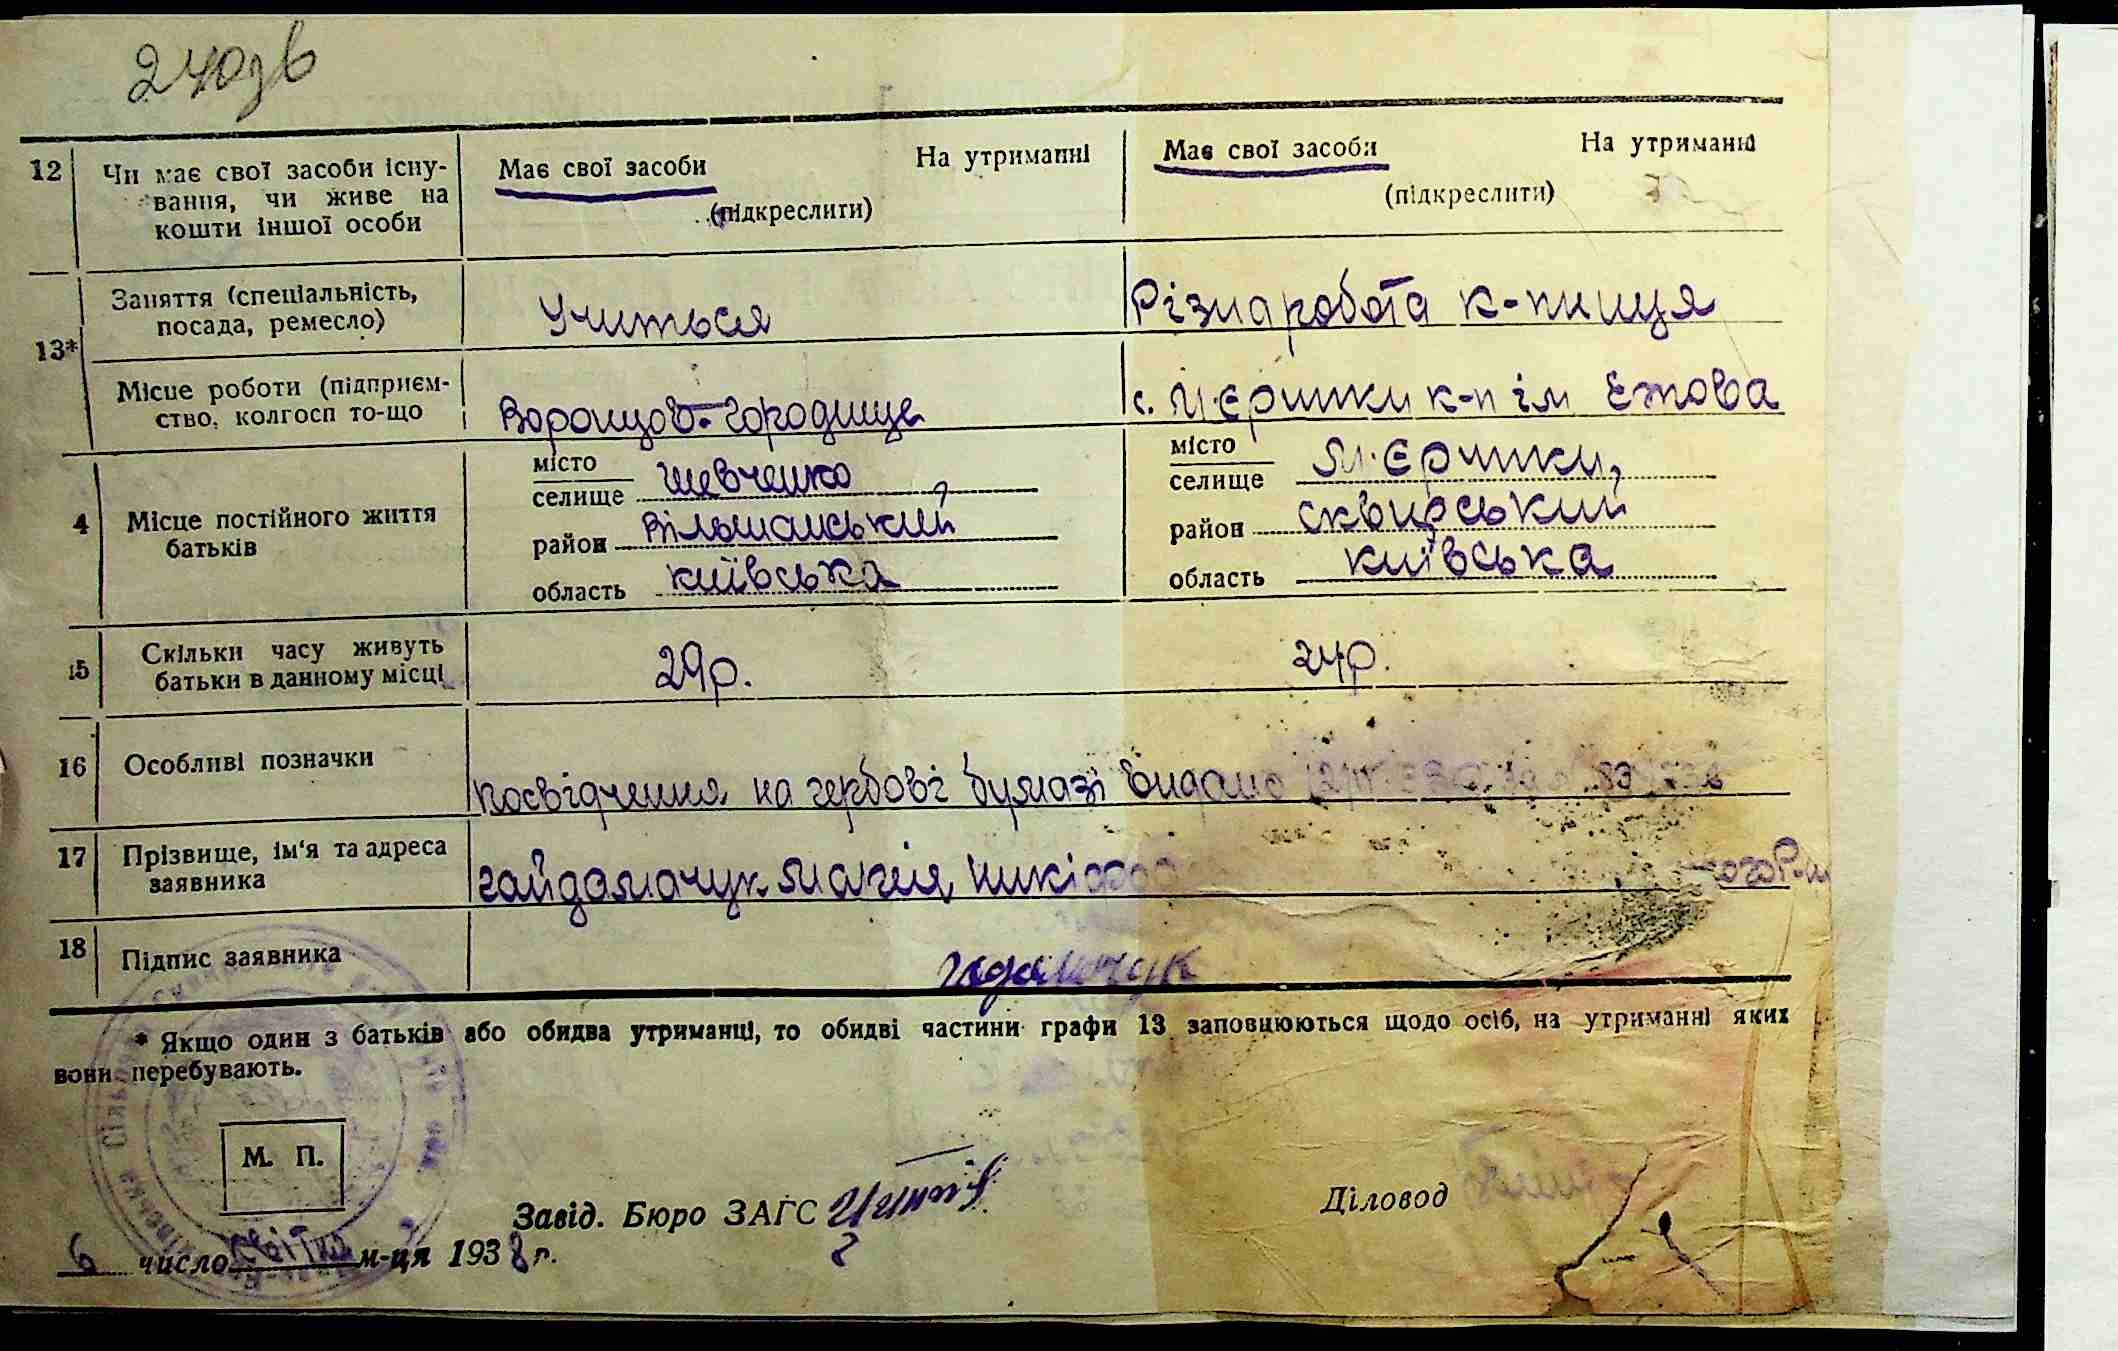 240зв
12 Чи має свої засоби існу-
вання, чи живе на
кошти іншої особи
Має свої засоби На утриманні
(підкреслити)
Має свої засоби На утриманні
(підкреслити)
13*
Заняття (спеціальність,
посада, ремесло)
Учиться
Різна робота к-пниця
Місце роботи (підприєм-
ство, колгосп то-що
Воронцово-Городище
с. М.Єрчики к-п ім Ежова
4 Місце постійного життя
батьків
місто
селище Шевченко,
район Вільшанський
область київська
місто
селище М.Єрчики,
район сквирський
область київська
15 Скільки часу живуть
батьки в данному місці
29р.
24р.
16 Особливі позначки
посвідчення на гербові бумазі видано
17 Прізвище, ім'я та адреса
заявника
гайдамачук
18 Підпис заявника
* Якщо один з батьків або обидва утриманці, то обидві частини графи 13 заповнюються щодо осіб, на утриманні яких
вони перебувають.
М. П.
Завід. Бюро ЗАГС
Діловод
6 число м-ця 1938 р.